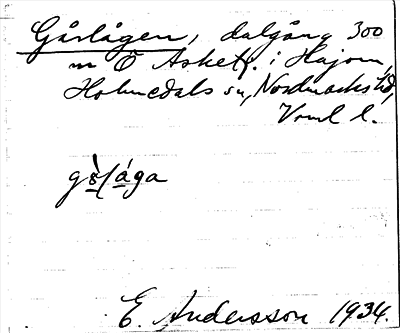 Gårlågen, dalgång 300
m Ö Asket. i Hajom,
Holmedals sn, Nordmarks hd,
Vrml l.
E. Andersson 1934.